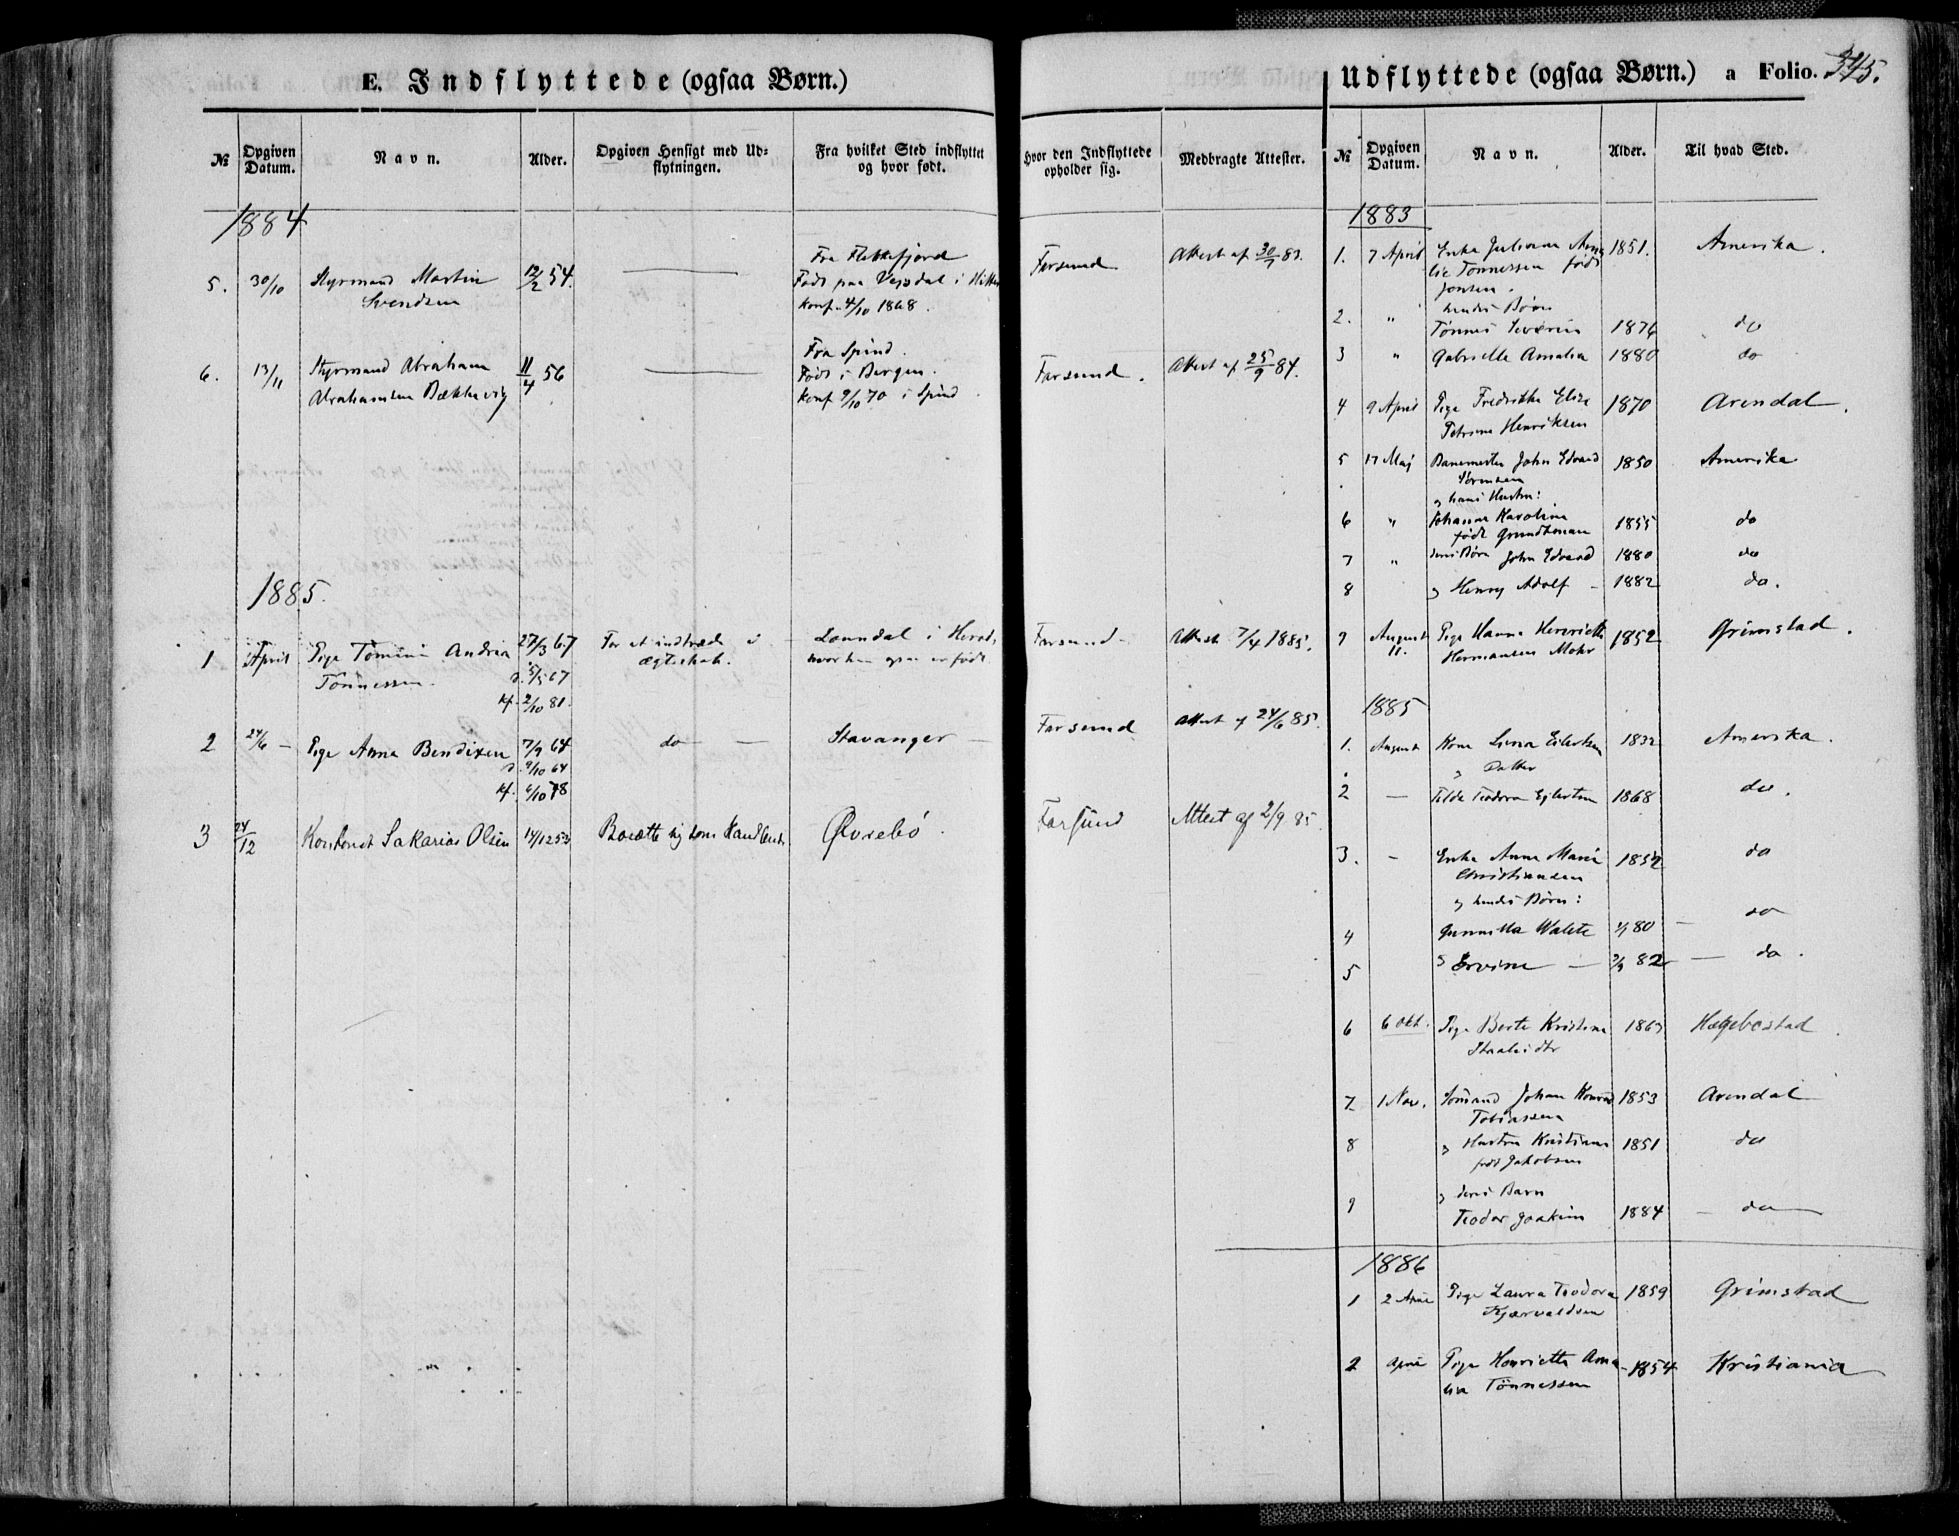 E. Indflyttede (ogsaa Børn.)
№ Opgiven Datum. Navn. Alder. Opgiven Hensigt med Udflytningen. Fra hvilket Sted indflyttet og hvor født. Hvor den Indflyttede opholder sig. Medbragte Attester.
1884
Fra Flekkefjord
5. 30/10 Styrmand Martin 12/2 54. Født paa i Farsund Attest af 83.
Svendsen konf. 4/10 1868.
Fra Spind.
6. 13/11 Styrmand Abraham 11/4 56 Født i Bergen. Farsund. Attest af 25/9 84.
Abrahamsen Bækkevig konf 9/10 70 i Spind.
1885.
1 April Pige Tomine Andrea 27/3 67 For at indtræde i Lonndal i Herad, Farsund Attest 7/4 1885.
Tønnessen. d. 5/5 67 Ægteskab. hvor hun ogsaa er født
kf. 2/10 81.
2 24/6 Pige Anna Bendixen 7/9 64 do Stavanger Farsund Attest af 24/6 85.
d. 9/10 64
kf. 6/10 78
3 24/12 Sakarias Olsen 14/12 53 Bosætte sig som Øvrebø Farsund Attest af 2/9 85.
Udflyttede (ogsaa Børn.) a Folio. 345.
№ Opgiven Datum. Navn. Alder. Til hvad Sted.
1883
1. 7 April Enke Juliane Ama 1851. Amerika.
lie Tønnessen født
Jonsen.
hendes Børn
2. " Tønnes Severin 1876 do
3 " Gabrielle Amalia 1880 do
4 9 April Pige Fredrikke Elise 1870 Arendal.
Petrine Henriksen
5 17 Maj Banemester John Edvard 1850 Amerika
Sørensen
og hans Hustru:
6 " Johanne Karoline 1855 do
født
7 " deres Børn John Edvard 1880 do
8 og Henry Adolf 1882 do.
9 August 11. Pige Hanna Henriette 1852 Grimstad.
Hermansen Mohr
1885
1. August Kone Lina Eilertsen 1832 Amerika.
og Datter
2 — Tilda Teodora Ejlertsen 1868 do.
3. - Enke Anna Marie 1852 do
Christiansen
og hendes Børn:
4 Walete 80 do
5 82 do.
6 6 Okt. Pige Berte Kristine 1863 Hægebostad
7 1 Nov. Sømand Johan Konrad 1853 Arendal
Tobiassen
8 og Hustru Kristiane 1851 do
født Jakobsen
9 og deres Barn
Teodor Joakim 1884 do
1886
1 2 April Pige Laura Teodora 1859 Grimstad
2 April Pige Henriette Ama 1854 Kristiania
lia Tønnessen